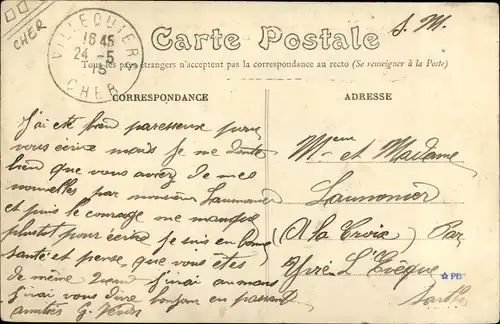 CHER
VILLEQUIERS
16 45
24 - 5
15
CHER
S. M.
Carte Postale
Tous les pays étrangers n'acceptent pas la correspondance au recto (Se renseigner à la Poste)
CORRESPONDANCE
J'ai été bien paresseux pour
vous écrire mais je me doute
bien que vous avez de mes
nouvelles par monsieur Launonier
et puis le courage me manque
plutot pour écrire je suis en bonne
santé et pense que vous êtes
de même quand j'irai au mans
j'irai vous dire bonjour en passant
amitiés G.
ADRESSE
Mr et Madame
Launonier
(A la Croix) Par
Yvré L'Evêque
Sarthe
PB